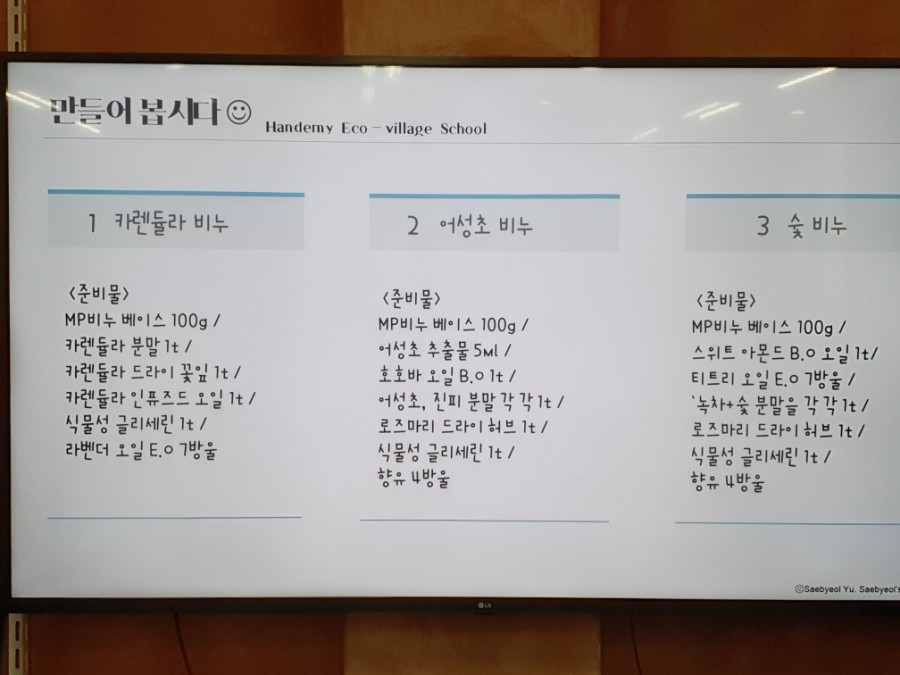 만들어 봅시다
Handemy Eco - village School
1 카렌듈라 비누
<준비물>
MP비누 베이스 100g /
카렌듈라 분말 1t /
카렌듈라 드라이 꽃잎 1t /
카렌듈라 인퓨즈드 오일 1t /
식물성 글리세린 1t /
라벤더 오일 E.O 7방울
2 어성초 비누
<준비물>
MP비누 베이스 100g /
어성초 추출물 5ml /
호호바 오일 B.O 1t /
어성초, 진피 분말 각 각 1t /
로즈마리 드라이 허브 1t /
식물성 글리세린 1t /
향유 4방울
3 숯 비누
<준비물>
MP비누 베이스 100g /
스위트 아몬드 B.O 오일 1t/
티트리 오일 E.O 7방울 /
`녹차+숯 분말을 각 각 1t /
로즈마리 드라이 허브 1t /
식물성 글리세린 1t /
향유 4방울
©Saebyeol Yu. Saebyeol's
LG